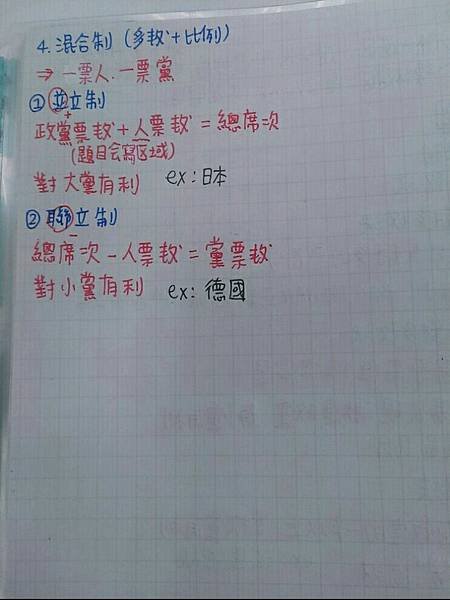 4. 混合制 (多数+比例)
⇒ 一票人.一票黨
① 並立制
+
政黨票数+人票数=總席次
(題目会寫区域)
對大黨有利 ex:日本
② 聯立制
−
總席次-人票数=黨票数
對小黨有利 ex:德國